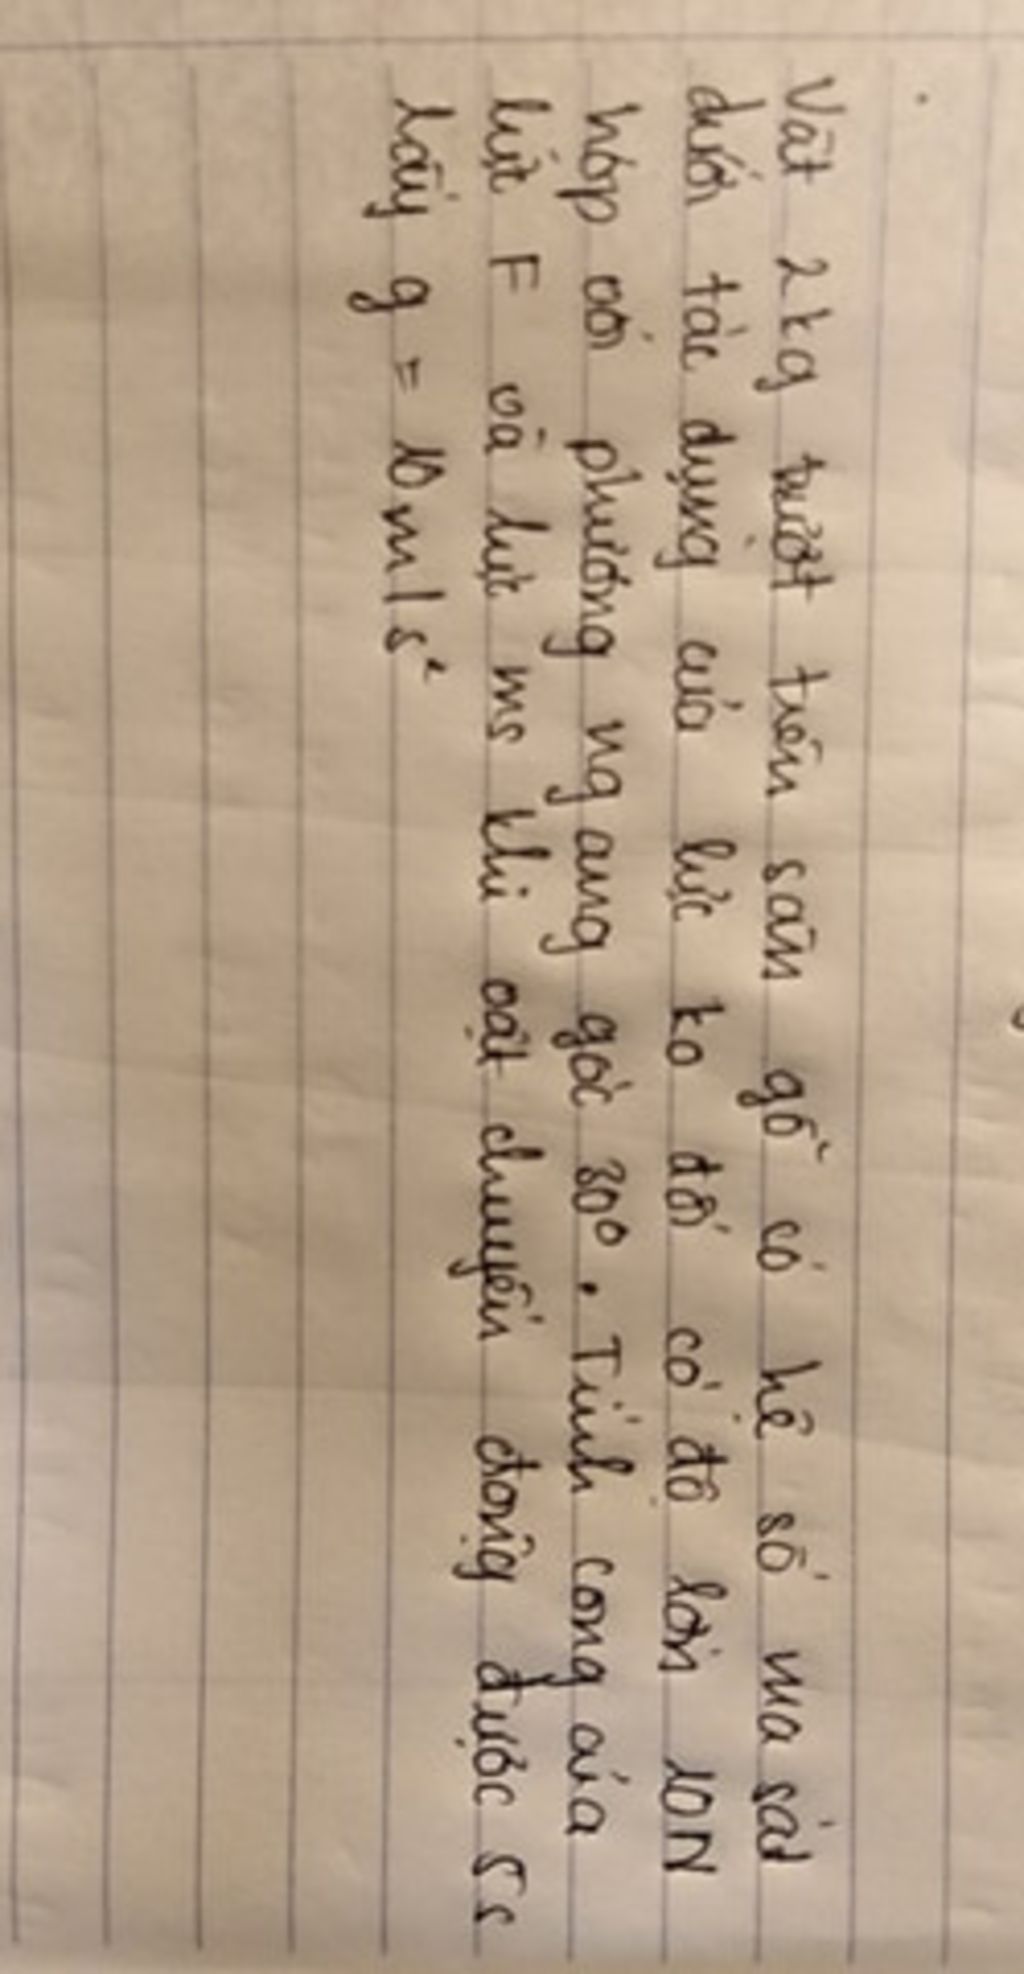 Vật 2kg trượt trên sàn gỗ có hệ số ma sát
dưới tác dụng của lực ko đổi có độ lớn 10N
hợp với phương ngang góc 30°. Tính công của
lực F và lực ms khi vật chuyển động được 5s
lấy g = 10m/s²